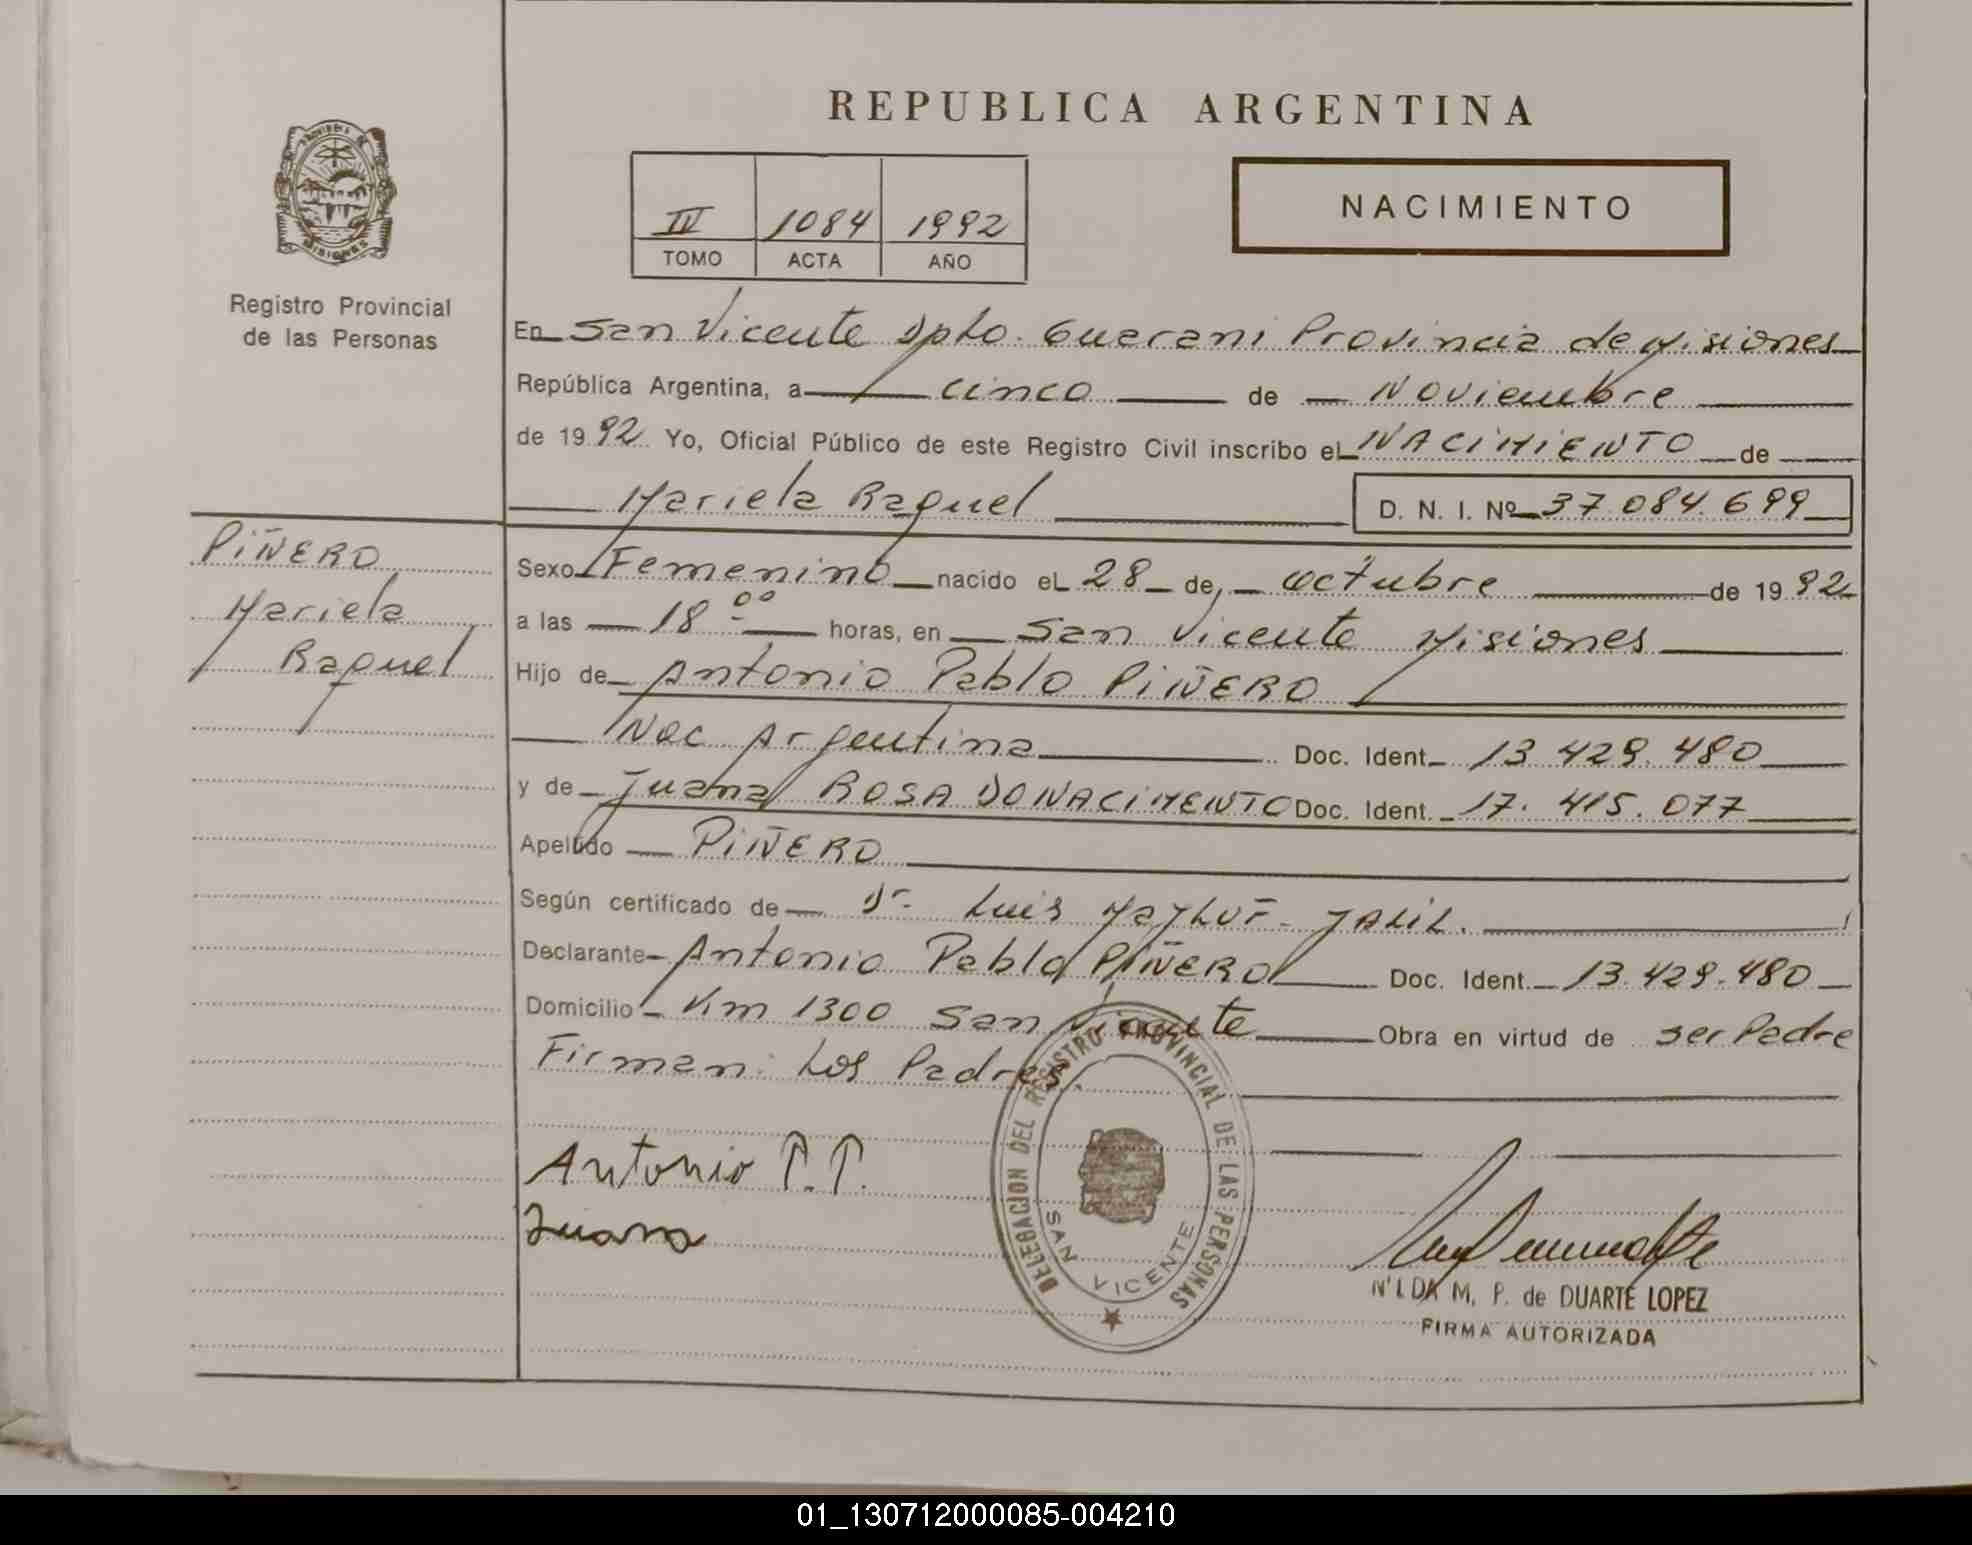 REPUBLICA ARGENTINA
NACIMIENTO
IV 1084 1992
TOMO ACTA AÑO
Registro Provincial
de las Personas
En San Vicente Dpto. Guarani Provincia de Misiones
República Argentina, a cinco de Noviembre
de 1992 Yo, Oficial Público de este Registro Civil inscribo el NACIMIENTO de
Mariela Raquel D. N. I. Nº 37.084.699
PIÑERO
Mariela
Raquel
Sexo Femenino nacido el 28 de octubre de 1992
a las 18 00 horas, en San Vicente Misiones
Hijo de Antonio Pablo PIÑERO
Nac. Argentina Doc. Ident. 13.429.480
y de Juana ROSA DONACIMENTO Doc. Ident. 17.415.077
Apellido PIÑERO
Según certificado de Dr. Luis JALIL.
Declarante Antonio Pablo PIÑERO Doc. Ident. 13.429.480
Domicilio Km 1300 San Vicente Obra en virtud de ser Padre
Firman: Los Padres.
Antonio P.P.
Juana
DELEGACION DEL REGISTRO PROVINCIAL DE LAS PERSONAS
SAN VICENTE
NILDA M. P. de DUARTE LOPEZ
FIRMA AUTORIZADA
01_130712000085-004210